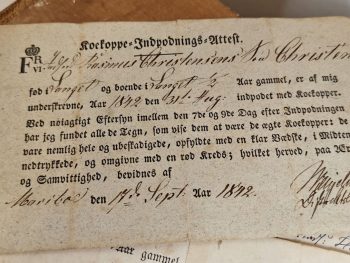 Koekoppe-Indpodnings-Attest.
F R
VI.
Rasmus Christensens Søn Christin
fød Sanget og boende Sanget 2 Aar gammel, er af mig
underskrevne, Aar 1842 den 31te Aug. indpodet med Koekopper.
Ved nøiagtigt Eftersyn imellem den 7de og 9de Dag efter Indpodningen
har jeg fundet alle de Tegn, som vise dem at være de ægte Koekopper: de
vare nemlig hele og ubeskadigede, opfyldte med en klar Vædske, i Midten
nedtrykkede, og omgivne med en rød Kreds; hvilket herved, paa
og Samvittighed, bevidnes af
Maribo den 17d Sept. Aar 1842.
Aar gammel